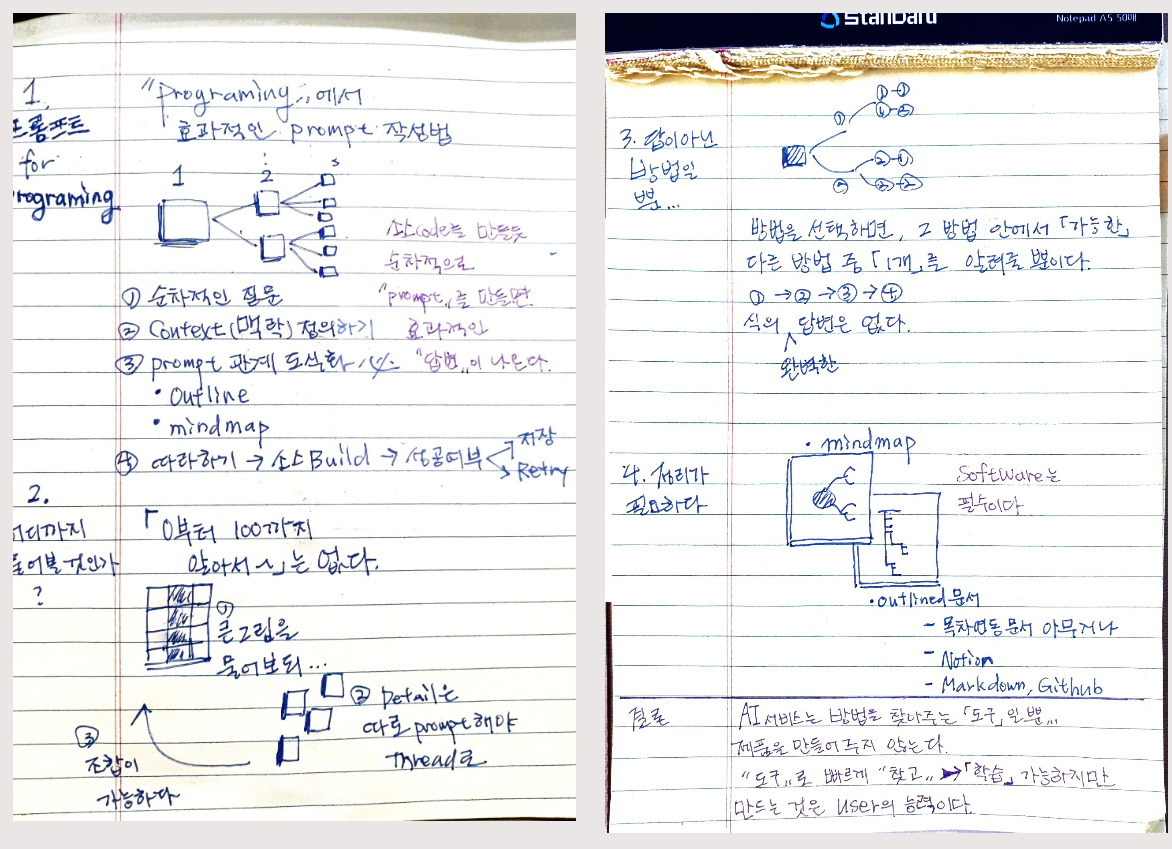 1.
프롬프트
for
Programing
"Programing"에서
효과적인 prompt 작성법
1 2 3
소스code를 만들듯
순차적으로
"prompt"를 만들면
효과적인
"답변"이 나온다.
① 순차적인 질문
② Context(맥락) 정의하기
③ prompt 관계 도식화
• Outline
• mindmap
④ 따라하기 → 소스Build → 성공여부
저장
Retry
2.
어디까지
물어볼 것인가
?
「0부터 100까지
알아서~」는 없다.
①
큰그림을
물어보되...
② Detail은
따로 prompt해야
Thread로
③
조합이
가능하다
Standard
Notepad A5 50매
3. 답이아닌
방법일
뿐...
① ①-①
①
② ②-①
②-②
방법을 선택하면, 그 방법 안에서 「가능한」
다른 방법 중 「1개」를 알려줄 뿐이다.
① → ② → ③ → ④
식의 답변은 없다.
완벽한
4. 정리가
필요하다
• mindmap
Software는
필수이다
• outlined 문서
- 목차연동문서 아무거나
- Notion
- Markdown, Github
결론
AI 서비스는 방법을 찾아주는 「도구」일뿐...
제품을 만들어주지 않는다.
"도구"로 빠르게 "찾고" → 「학습」 가능하지만
만드는 것은 user의 능력이다.